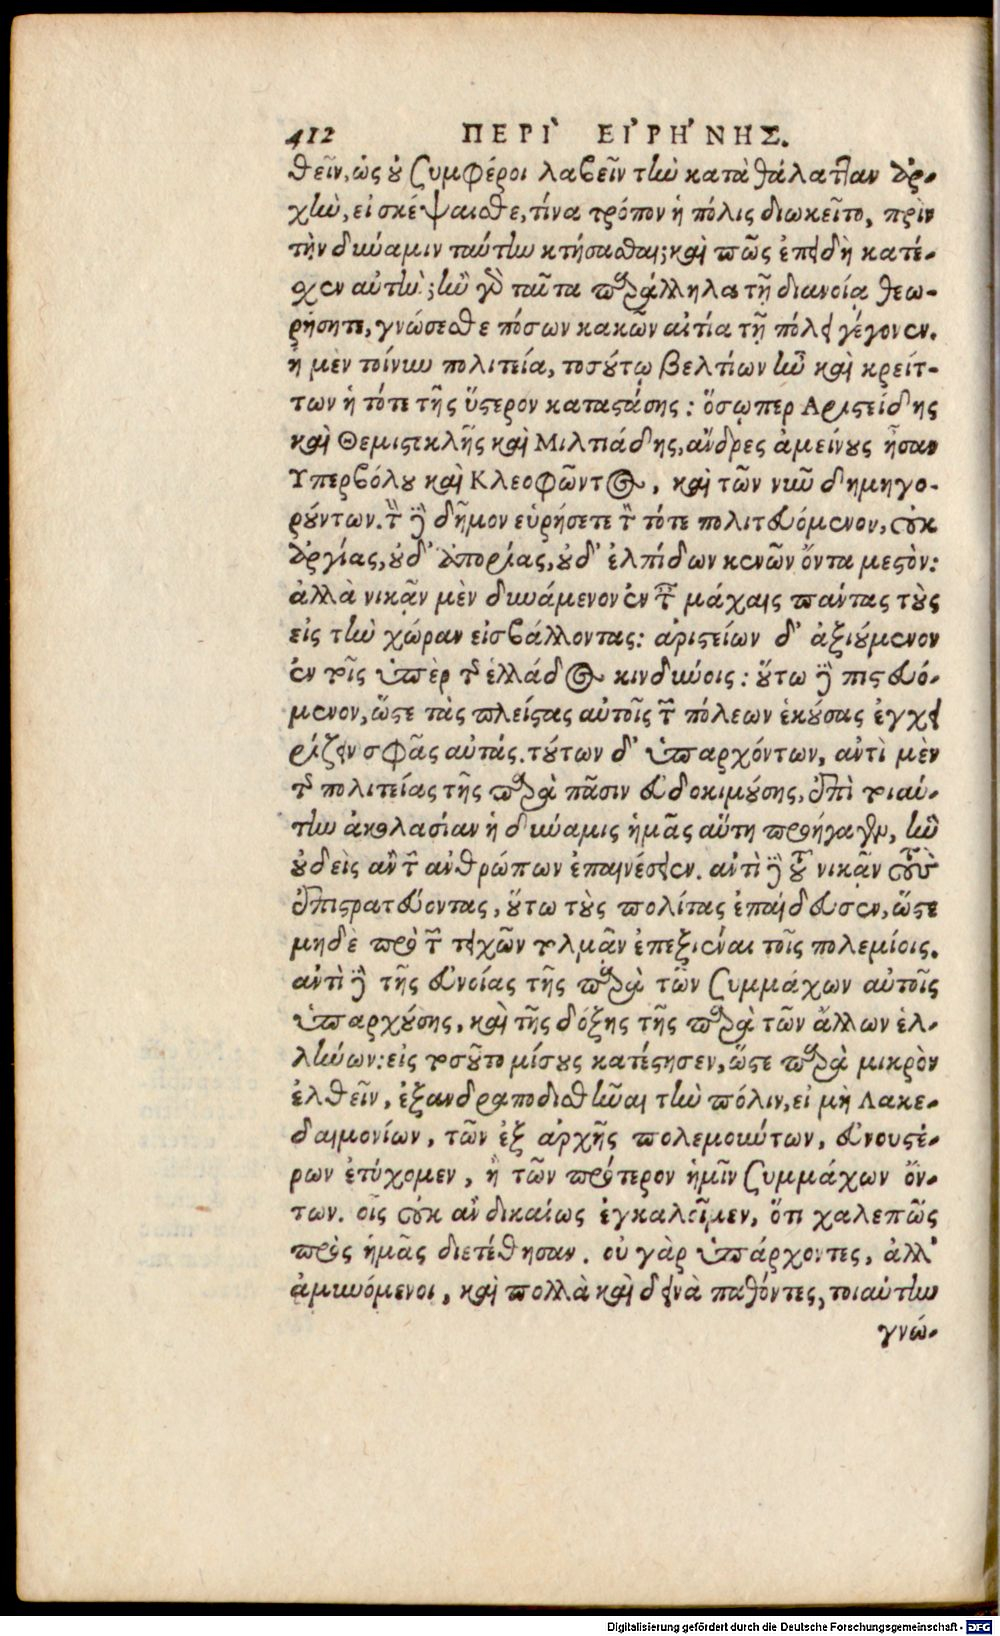 412 ΠΕΡΙ` ΕΙ'ΡΗ'ΝΗΣ.
θεῖν, ὡς οὐ συμφέροι λαβεῖν τὴν κατὰ θάλατταν ἀρ-
χὴν, εἰ σκέψαισθε, τίνα τρόπον ἡ πόλις διωκεῖτο, πρὶν
τὴν δύναμιν ταύτην κτήσασθαι; καὶ πῶς ἐπειδὴ κατέ-
σχεν αὐτὴν; ἢν γὸ ταῦτα παράλληλα τῇ διανοίᾳ θεω-
ρήσητε, γνώσεσθε πόσων κακῶν αἰτία τῇ πόλει γέγονεν.
ἡ μὲν τοίνυν πολιτεία, τοσούτῳ βελτίων ἦν καὶ κρείτ-
των ἡ τότε τῆς ὕστερον καταστάσης: ὅσῳπερ Αριστείδης
καὶ Θεμιστκλῆς καὶ Μιλτιάδης, ἄνδρες ἀμείνους ἦσαν
Υπερβόλου καὶ Κλεοφῶντος, καὶ τῶν νῦν δημηγο-
ρούντων. τὸν δὲ δῆμον εὑρήσετε τὸν τότε πολιτευόμενον, οὐκ
ἀργίας, οὐδ' ἀπορίας, οὐδ' ἐλπίδων κενῶν ὄντα μεστὸν:
ἀλλὰ νικᾷν μὲν δυνάμενον ἐν ταῖς μάχαις πάντας τοὺς
εἰς τὴν χώραν εἰσβάλλοντας: ἀριστείων δ' ἀξιούμενον
ἐν τοῖς ὑπὲρ τῆς ἑλλάδος κινδύνοις: οὕτω δὲ πιστευό-
μενον, ὥστε τὰς πλείστας αὐτοῖς τῶν πόλεων ἑκούσας ἐγχει
ρίζειν σφᾶς αὐτάς. τούτων δ' ὑπαρχόντων, ἀντὶ μὲν
τῆς πολιτείας τῆς παρὰ πᾶσιν εὐδοκιμούσης, ἐπὶ τοιαύ-
την ἀκολασίαν ἡ δύναμις ἡμᾶς αὕτη προήγαγεν, ἣν
οὐδεὶς ἂν τῶν ἀνθρώπων ἐπαινέσειεν. ἀντὶ δὲ τοῦ νικᾷν τοὺς
ἐπιστρατεύοντας, οὕτω τοὺς πολίτας ἐπαίδευσεν, ὥστε
μηδὲ πρὸ τῶν τειχῶν τολμᾶν ἐπεξιέναι τοῖς πολεμίοις.
ἀντὶ δὲ τῆς εὐνοίας τῆς παρὰ τῶν συμμάχων αὐτοῖς
ὑπαρχούσης, καὶ τῆς δόξης τῆς παρὰ τῶν ἄλλων ἑλ-
λήνων: εἰς τοσοῦτο μίσους κατέστησεν, ὥστε παρὰ μικρὸν
ἐλθεῖν, ἐξανδραποδισθῆναι τὴν πόλιν, εἰ μὴ Λακε-
δαιμονίων, τῶν ἐξ ἀρχῆς πολεμούντων, εὐνουστέ-
ρων ἐτύχομεν, ἢ τῶν πρότερον ἡμῖν συμμάχων ὄν-
των. οἷς οὐκ ἂν δικαίως ἐγκαλοῖμεν, ὅτι χαλεπῶς
πρὸς ἡμᾶς διετέθησαν. οὐ γὰρ ὑπάρχοντες, ἀλλ'
ἀμυνόμενοι, καὶ πολλὰ καὶ δεινὰ παθόντες, τοιαύτην
γνώ-
Digitalisierung gefördert durch die Deutsche Forschungsgemeinschaft - DFG